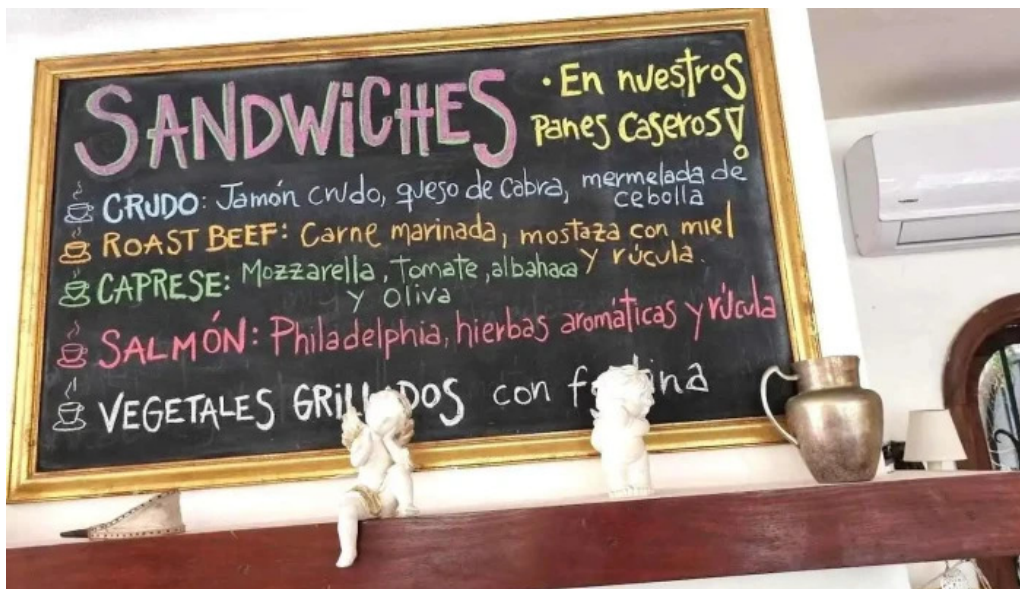 SANDWiCHES
• En nuestros
panes caseros!
CRUDO: Jamón crudo, queso de cabra, mermelada de
cebolla
ROAST BEEF: Carne marinada, mostaza con miel
y rúcula.
CAPRESE: Mozzarella, tomate, albahaca
y oliva
SALMÓN: Philadelphia, hierbas aromáticas y rúcula
VEGETALES con